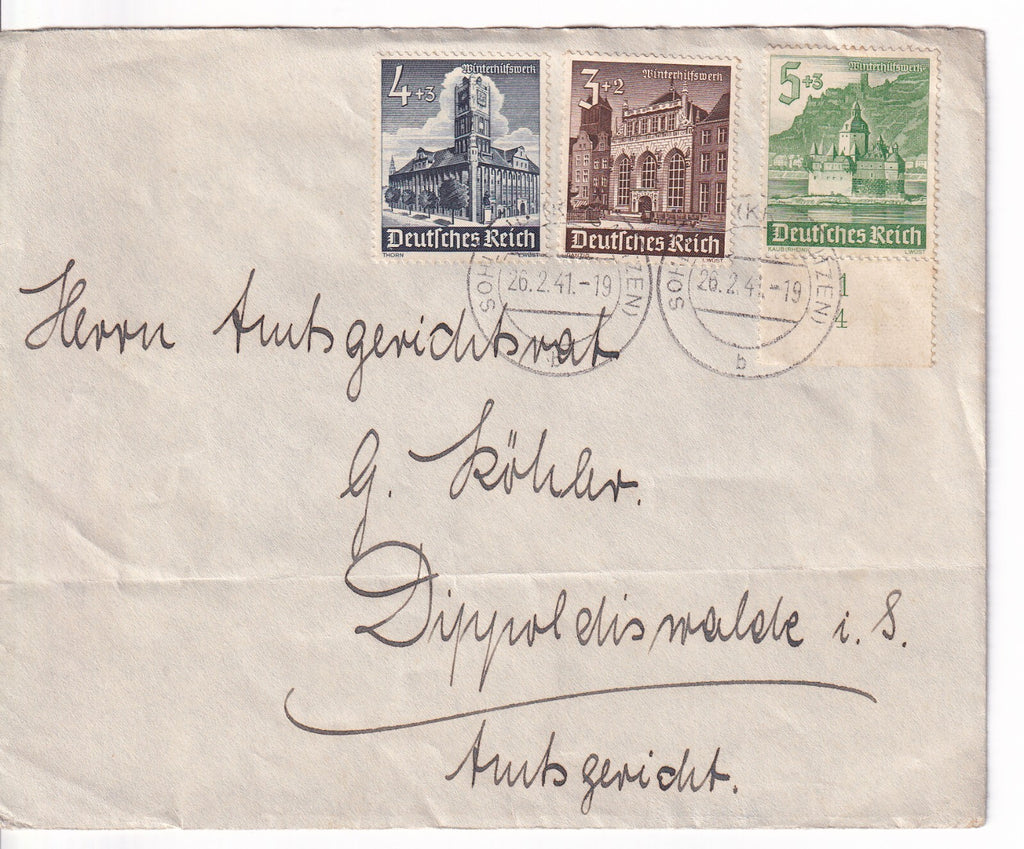 4+3 Winterhilfswerk
Deutsches Reich
THORN
3+2 Winterhilfswerk
Deutsches Reich
5+3 Winterhilfswerk
Deutsches Reich
KAUB (RHEIN)
1
4
26.2.41.-19
b
26.2.41.-19
b
Herrn Amtsgerichtsrat
G. Köhler.
Dippoldiswalde i. S.
Amtsgericht.